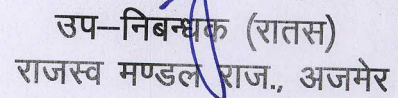 उप–निबन्धक (रातस)
राजस्व मण्डल राज., अजमेर